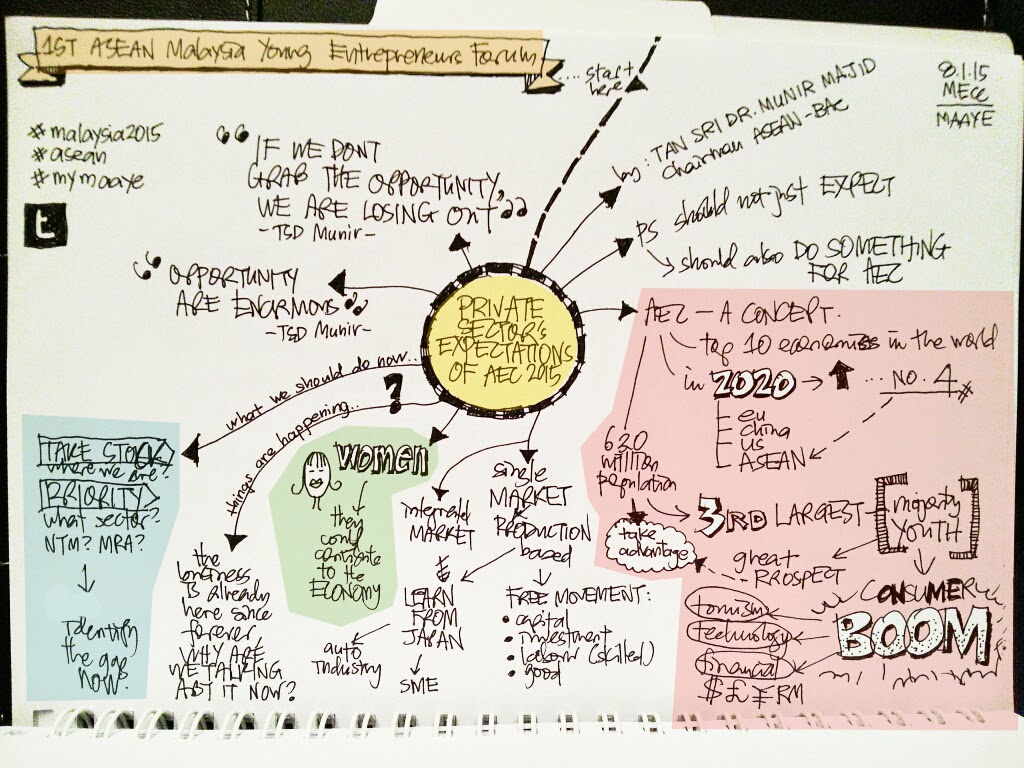 1ST ASEAN Malaysia Young Entrepreneurs Forum
... start
here
8.1.15
MECC
MAAYE
#malaysia2015
#asean
#mymaaye
t
by: TAN SRI DR. MUNIR MAJID
Chairman ASEAN-BAC
PS should not just EXPECT
should also DO SOMETHING
FOR AEC
"IF WE DONT
GRAB THE OPPORTUNITY,
WE ARE LOSING OUT"
- TSD Munir -
"OPPORTUNITY
ARE ENORMOUS"
- TSD Munir -
PRIVATE
SECTOR'S
EXPECTATIONS
OF AEC 2015
AEC - A CONCEPT.
top 10 economies in the world
in 2020 → ... NO. 4
eu
china
US
ASEAN
630
million
population
take
advantage
3RD LARGEST
majority
YOUTH
great
PROSPECT
CONSUMER
BOOM
tourism
technology
financial
$ £ ¥ RM
what we should do now...
things are happening...
?
TAKE STOCK
where we are?
PRIORITY
what sector?
NTM? MRA?
Identify
the gap
now?
the
business
is already
here since
forever
WHY ARE
WE TALKING
ABT IT NOW?
women
they
could
contribute
to the
ECONOMY
integrated
MARKET
LEARN
FROM
JAPAN
auto
industry
SME
single
MARKET
PRODUCTION
based
FREE MOVEMENT:
• capital
• investment
• labour (skilled)
• good